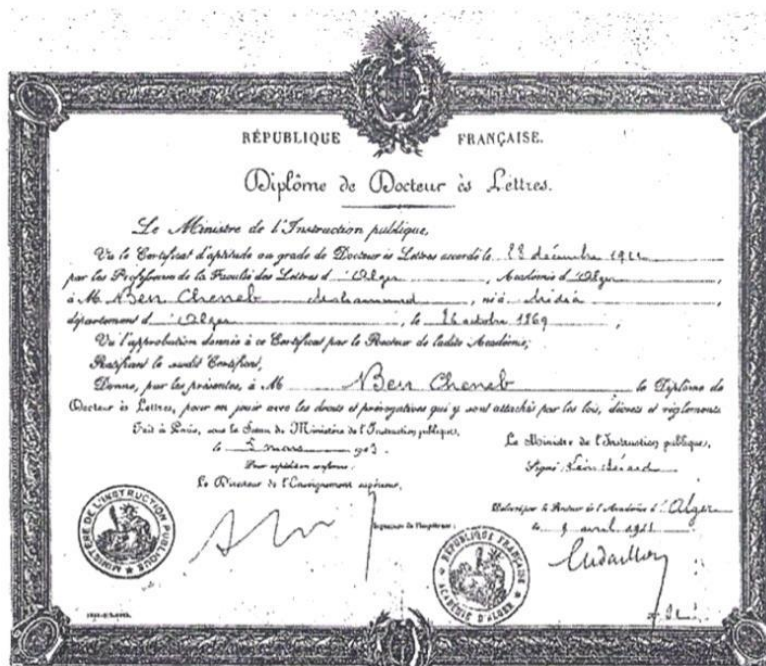 RÉPUBLIQUE FRANÇAISE.
Diplôme de Docteur ès Lettres.
Le Ministre de l'Instruction publique,
Vu le Certificat d'aptitude au grade de Docteur ès Lettres accordé le décembre
par les Professeurs de la Faculté des Lettres d'Alger, Académie d'Alger,
à M. Ben Cheneb né à Médéa
département d'Alger, le 26 octobre 1869,
Vu l'approbation donnée à ce Certificat par le Recteur de ladite Académie;
Ratifiant le susdit Certificat,
Donne, par les présentes, à M Ben Cheneb le Diplôme de
Docteur ès Lettres, pour en jouir avec les droits et prérogatives qui y sont attachés par les lois, décrets et règlements
Fait à Paris, sous le Sceau du Ministère de l'Instruction publique,
le mars
Pour expédition conforme:
Le Directeur de l'Enseignement supérieur,
Le Ministre de l'Instruction publique,
Signé Léon Bérard
Délivré par le Recteur de l'Académie d'Alger
le 9 avril
Signature de l'Impétrant:
MINISTÈRE DE L'INSTRUCTION PUBLIQUE
RÉPUBLIQUE FRANÇAISE
ACADÉMIE D'ALGER